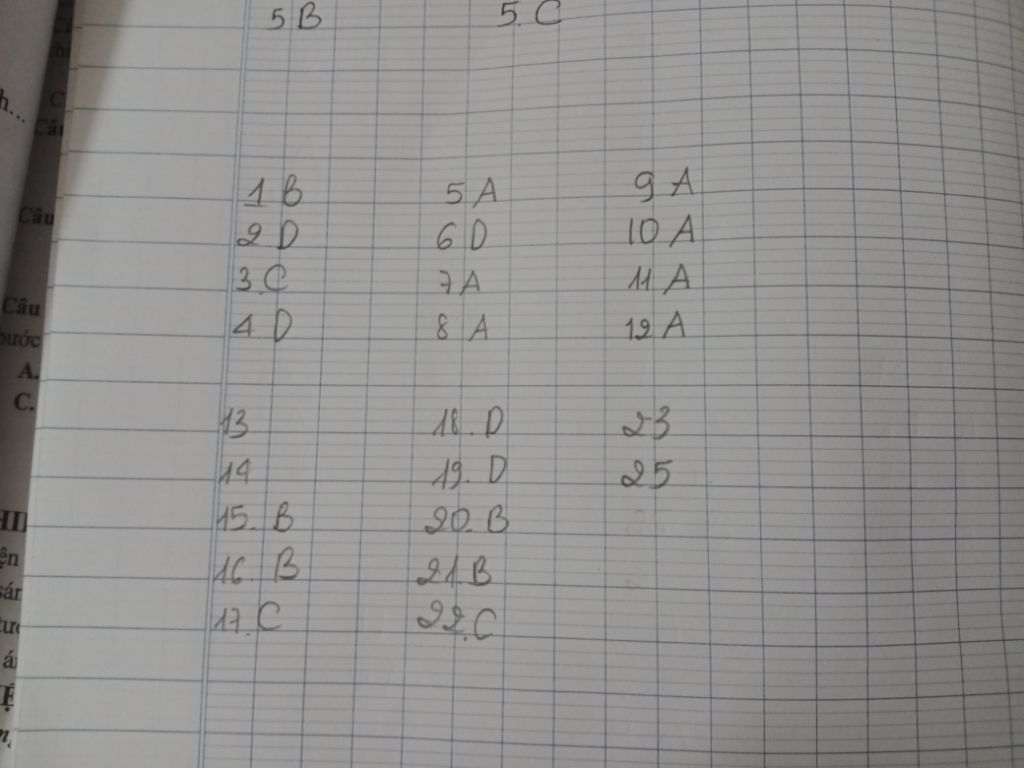 5 B 5. C
1 B 5 A 9 A
2 D 6 D 10 A
3. C 7 A 11 A
4. D 8 A 12 A
13 18. D 23
14 19. D 25
15. B 20. B
16. B 21. B
17. C 22. C
h...
C
Câu
Câu
Câu
bước
A.
C.